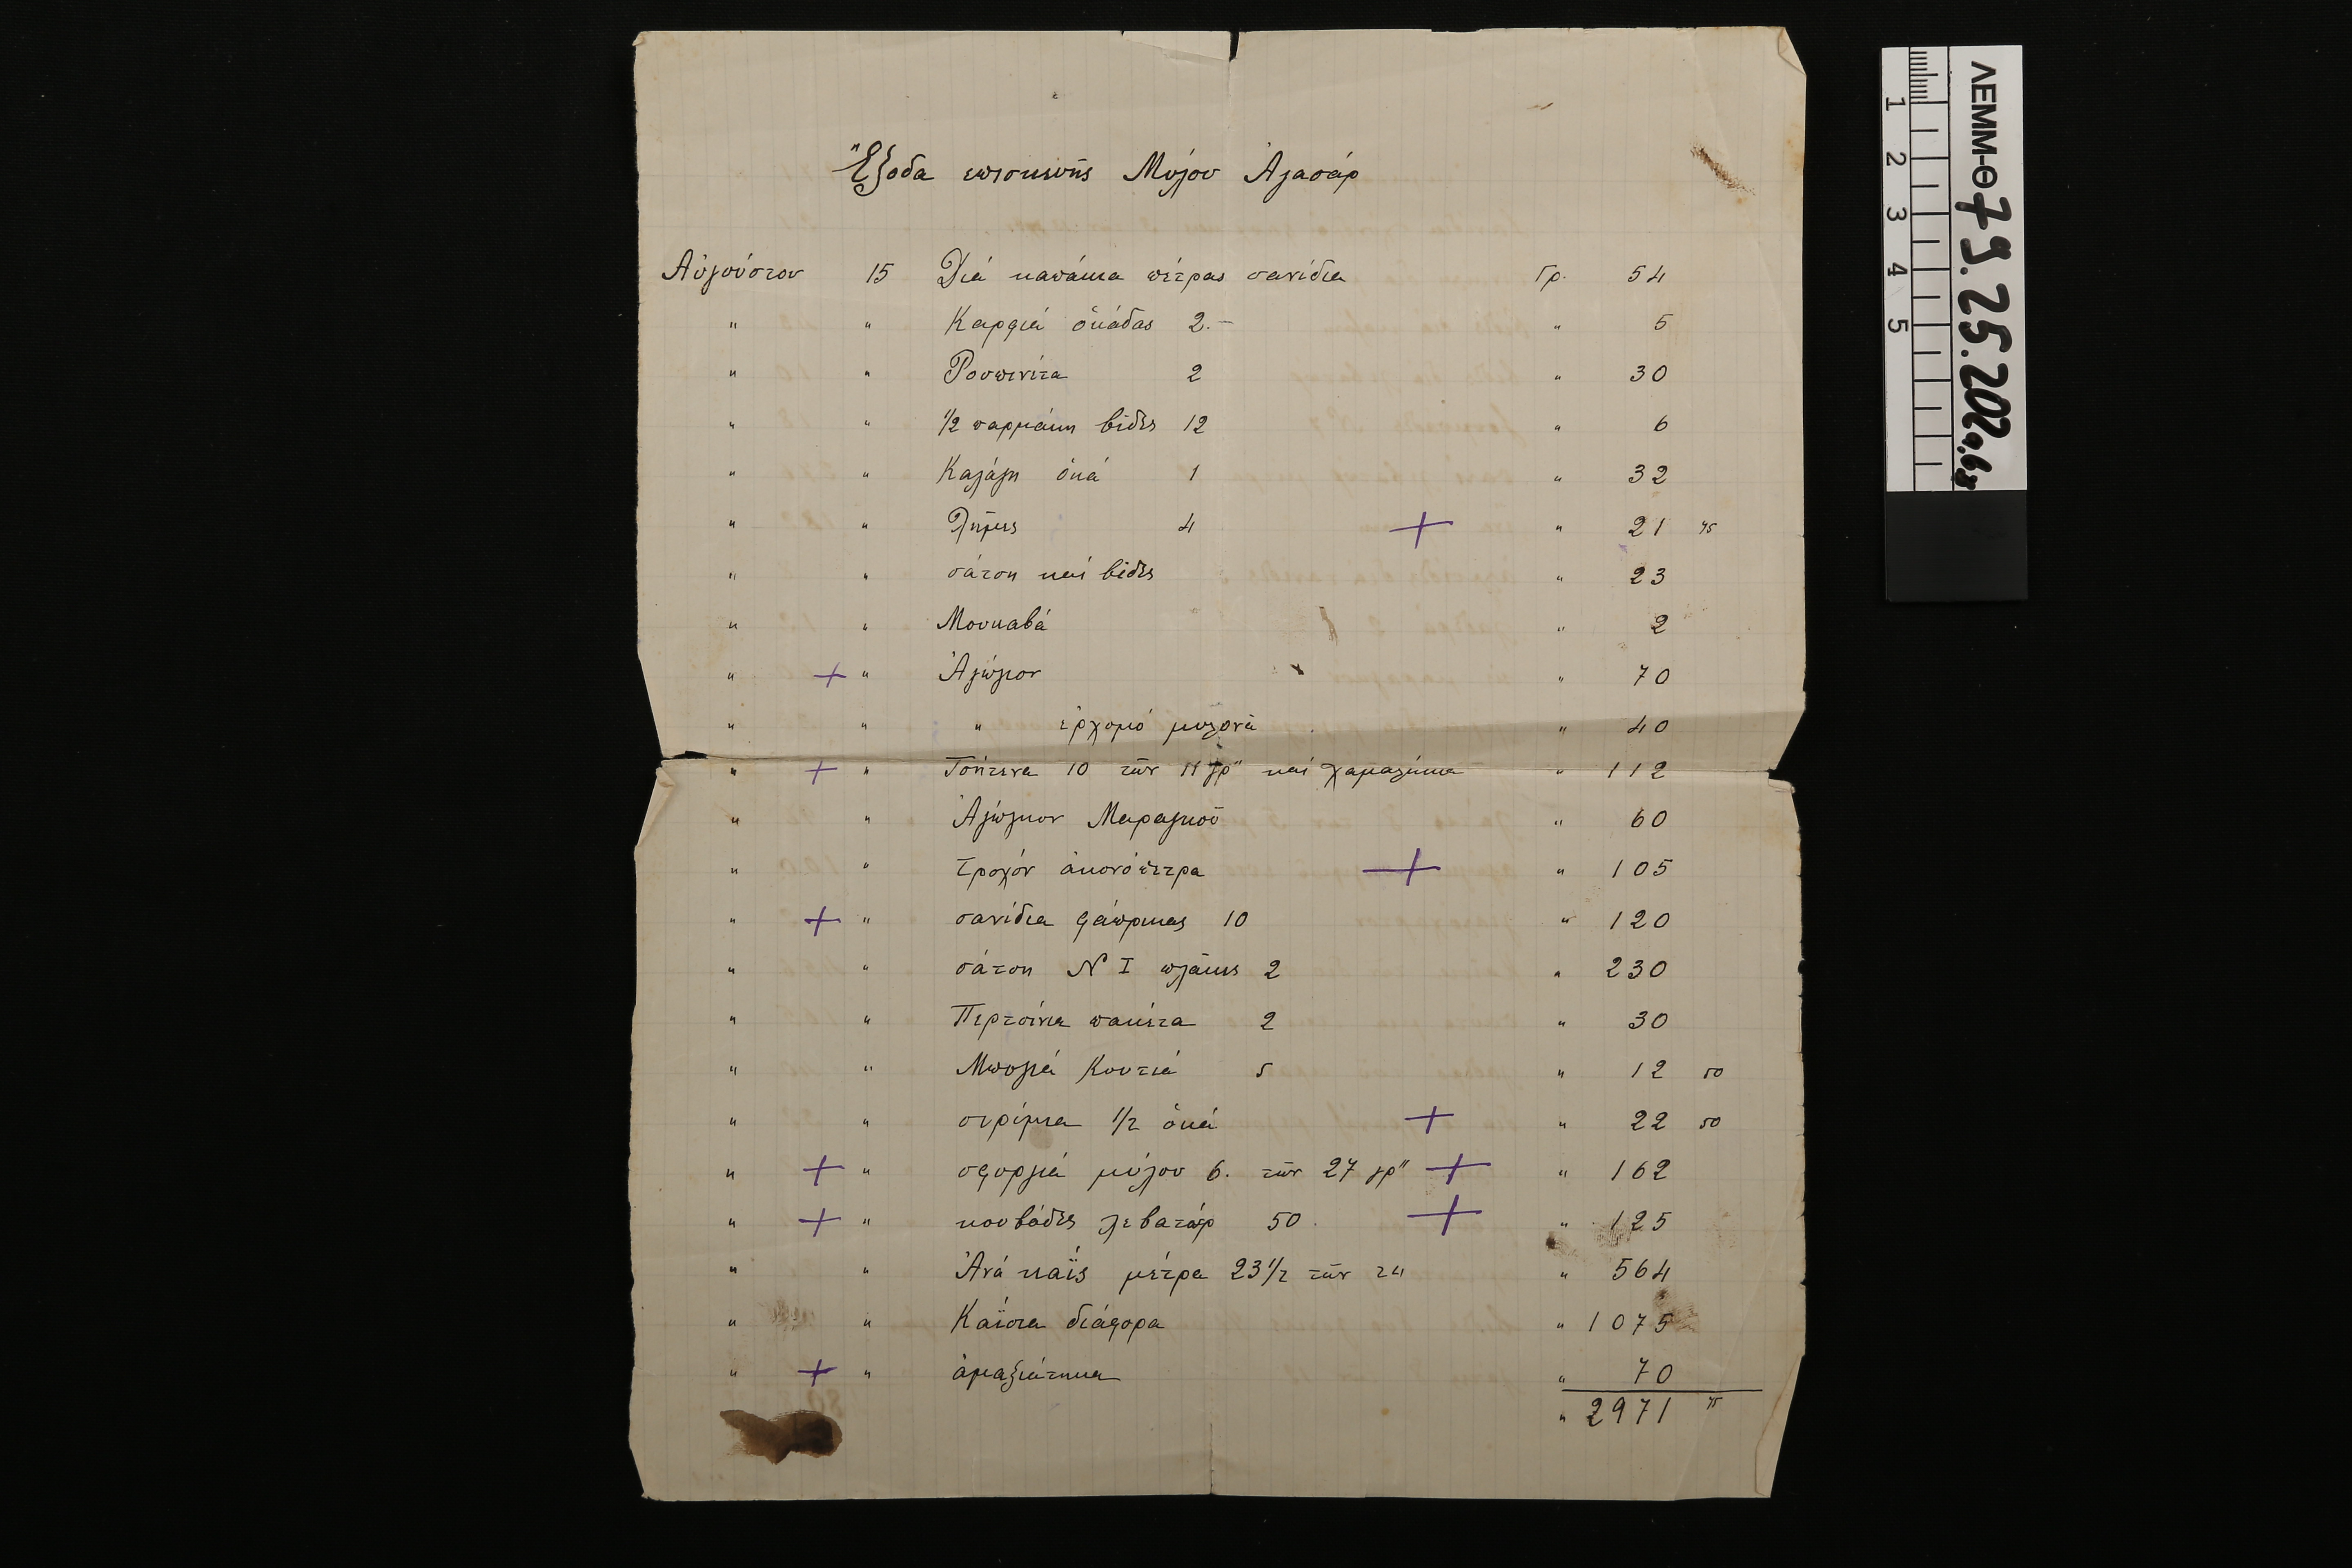 Ἔξοδα επισκευῆς Μύλου Ἀλασάρ
Αὐγούστου 15 Διά καπάκια πέτρας σανίδια Γρ. 54
" " Καρφιά ὀκάδας 2.- " 5
" " Ρουπινέτα 2 " 30
" " 1/2 παρμάκη βίδες 12 " 6
" " Καλάγη ὀκά 1 " 32
" " Λῆμες 4 + " 21 75
" " σάτση καί βίδες " 23
" " Μουκαβά " 2
" + " Ἀγώγιον " 70
" " " ἐρχομό μυλονᾶ " 40
" + " Τσήτενα 10 τῶν 11 γρ" καί χαμαλήκια " 112
" " Ἀγώγιον Μαραγκοῦ " 60
" " τροχόν ἀκονόπετρα + " 105
" + " σανίδια φάπρικας 10 " 120
" " σάτση Ν Ι πλάκες 2 " 230
" " Περτσίνια πακέτα 2 " 30
" " Μπογιά Κουτιά 5 " 12 50
" " σιρίμια 1/2 ὀκά + " 22 50
" + " σφυργιά μύλου 6. τῶν 27 γρ" + " 162
" + " κουβάδες λεβατόρ 50. + " 125
" " Ἀνά καΐς μέτρα 23 1/2 τῶν 24 " 564
" " Καΐσια διάφορα " 1075
" + " ἁμαξιάτικα " 70
" 2971 75
1 2 3 4 5
ΛΕΜΜ-Θ 79.25.202α,β